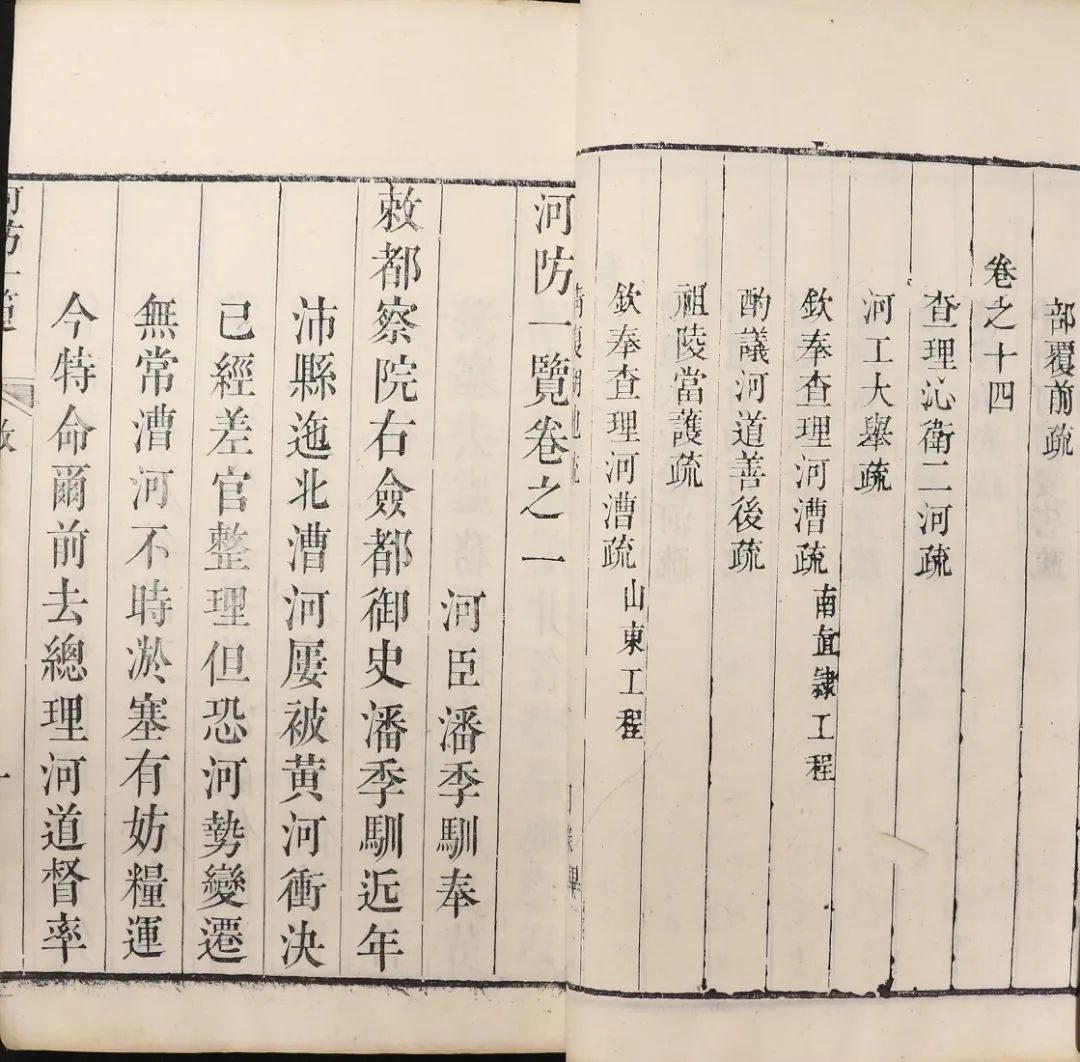 部覆前疏
卷之十四
查理沁衛二河疏
河工大舉疏
欽奉查理河漕疏南直隸工程
酌議河道善後疏
祖陵當護疏
欽奉查理河漕疏山東工程
河防一覽卷之一
河臣潘季馴奉
敕都察院右僉都御史潘季馴近年
沛縣迤北漕河屢被黄河衝決
已經差官整理但恐河勢變遷
無常漕河不時淤塞有妨糧運
今特命爾前去總理河道督率